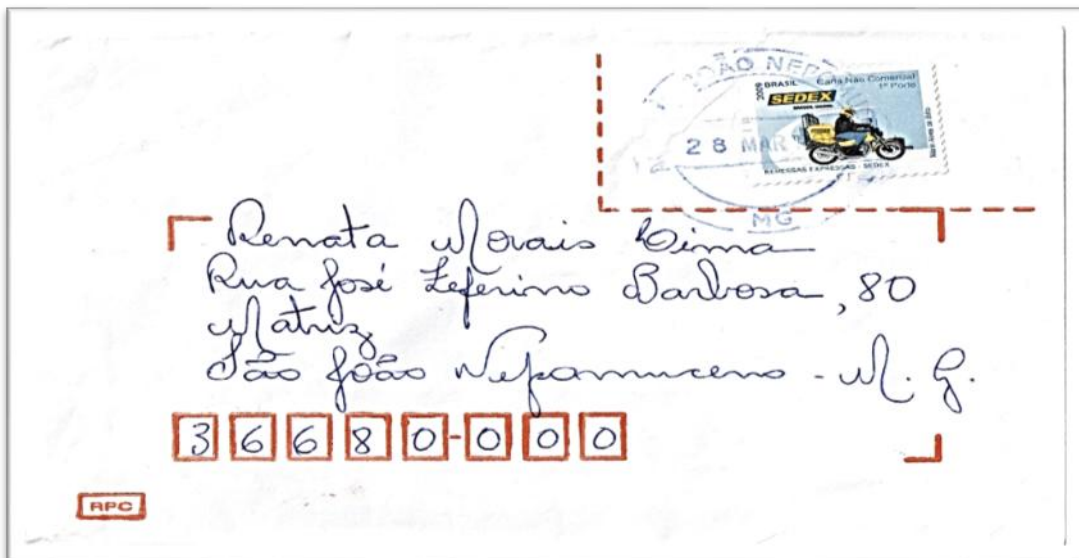 JOÃO NEPO
2009 BRASIL Carta Não Comercial
1º Porte
SEDEX
28 MAR
REMESSAS EXPRESSAS - SEDEX
MG
Renata Morais Lima
Rua José Zeferino Barbosa, 80
Matriz
São João Nepomuceno - M. G.
36680-000
RPC